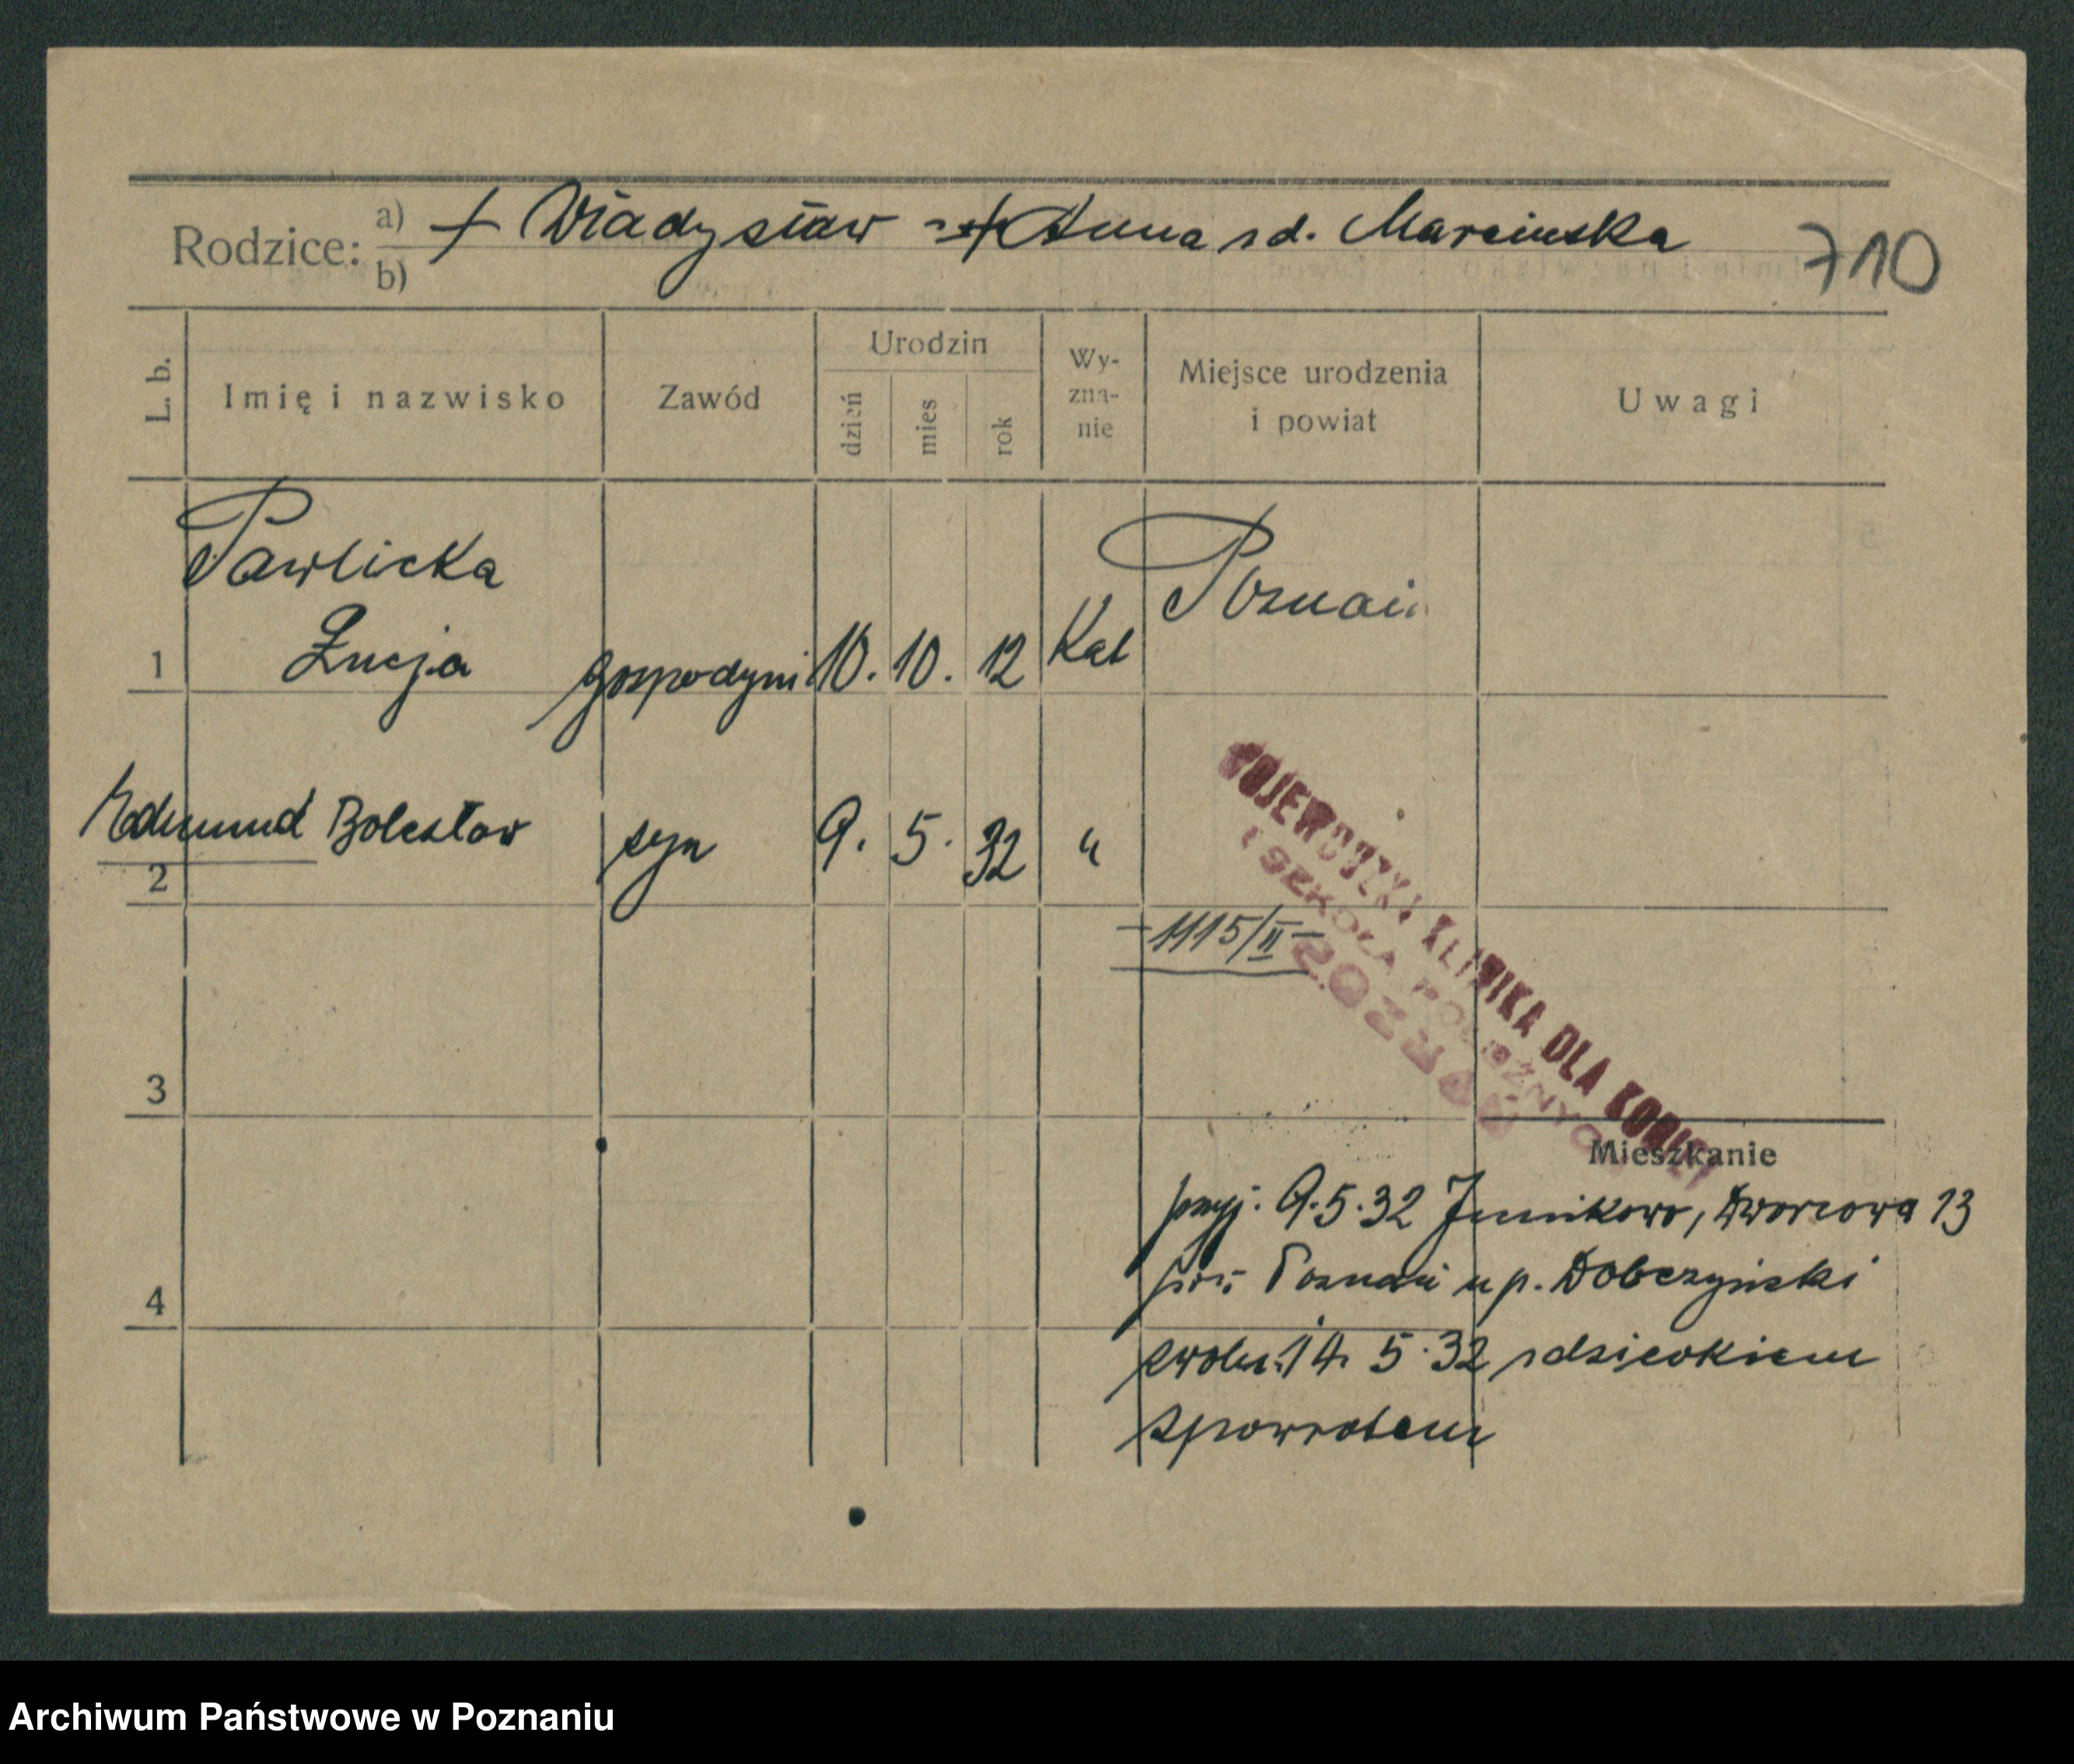 Rodzice: a) + Władysław + Anna zd. Marcinska
b)
710
L. b.
Imię i nazwisko
Zawód
Urodzin
dzień
mies
rok
Wy-
zna-
nie
Miejsce urodzenia
i powiat
Uwagi
Pawlicka
1 Łucja gospodyni 10. 10. 12 Kat Poznań
Edmund Bolesław syn 9. 5. 32 "
2
-1115/II-
WOJEWÓDZKA KLINIKA DLA KOBIET
I SZKOŁA POŁOŻNYCH
POZNAŃ
3
Mieszkanie
przyj. 9.5.32 Junikowo, Dworcowa 13
Poznań u p. Dobczyński
4
zwoln. 14. 5. 32 z dzieckiem
zpowrotem
Archiwum Państwowe w Poznaniu